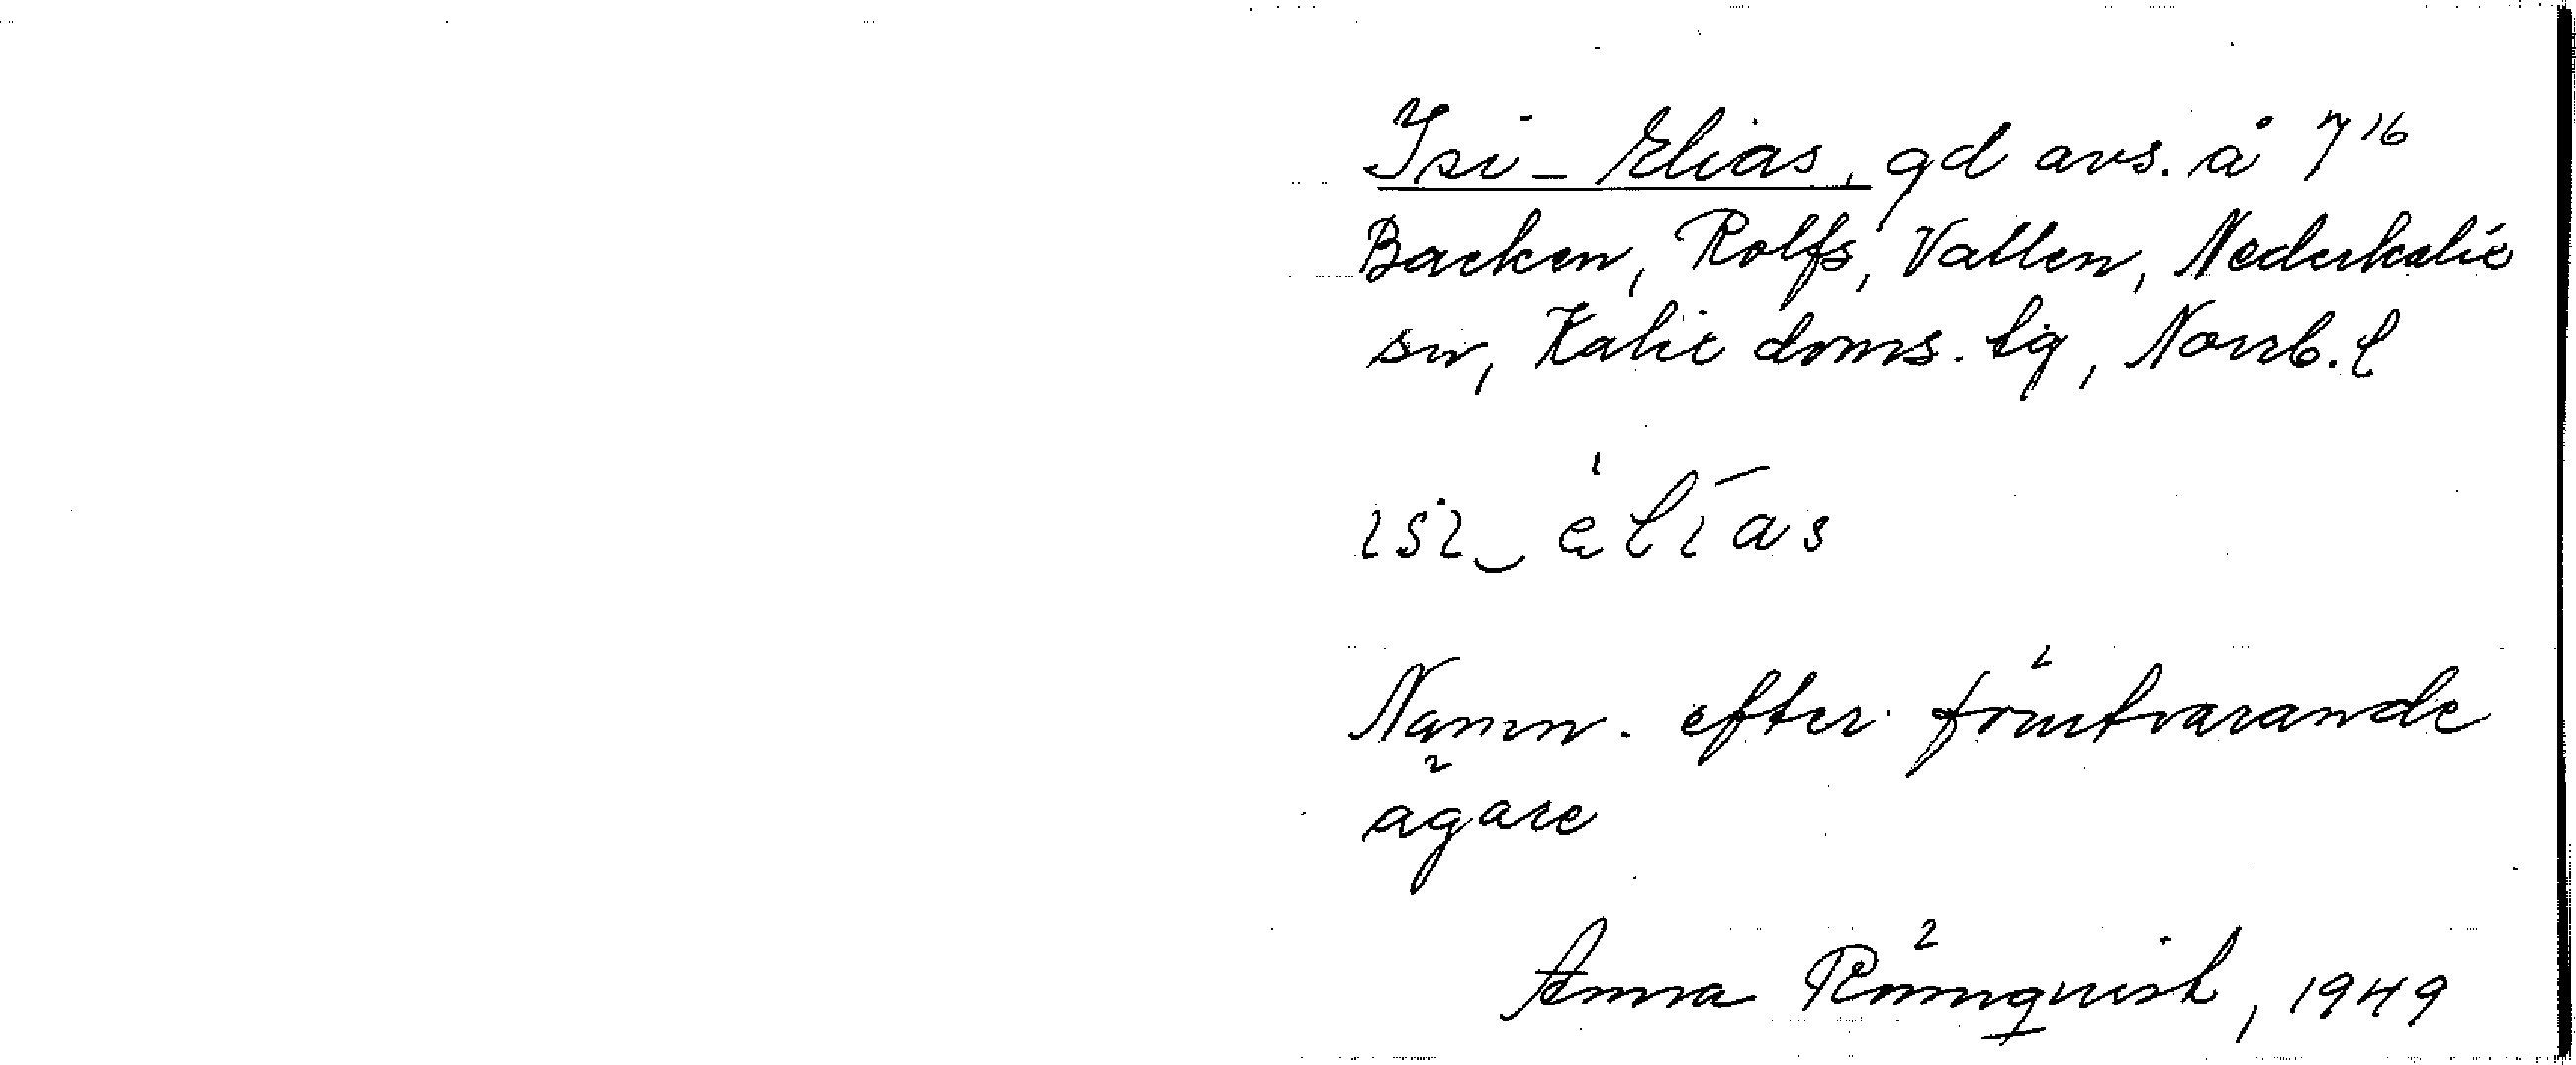 Isi-Elias, gd avs. å 7¹⁶
Backen, Rolfs, Vallen, Nederkalix
sn, Kalix doms. tg, Norrb. l
isi‿èlīas
Namn. efter förutvarande
ägare
Anna Rönnqvist, 1949